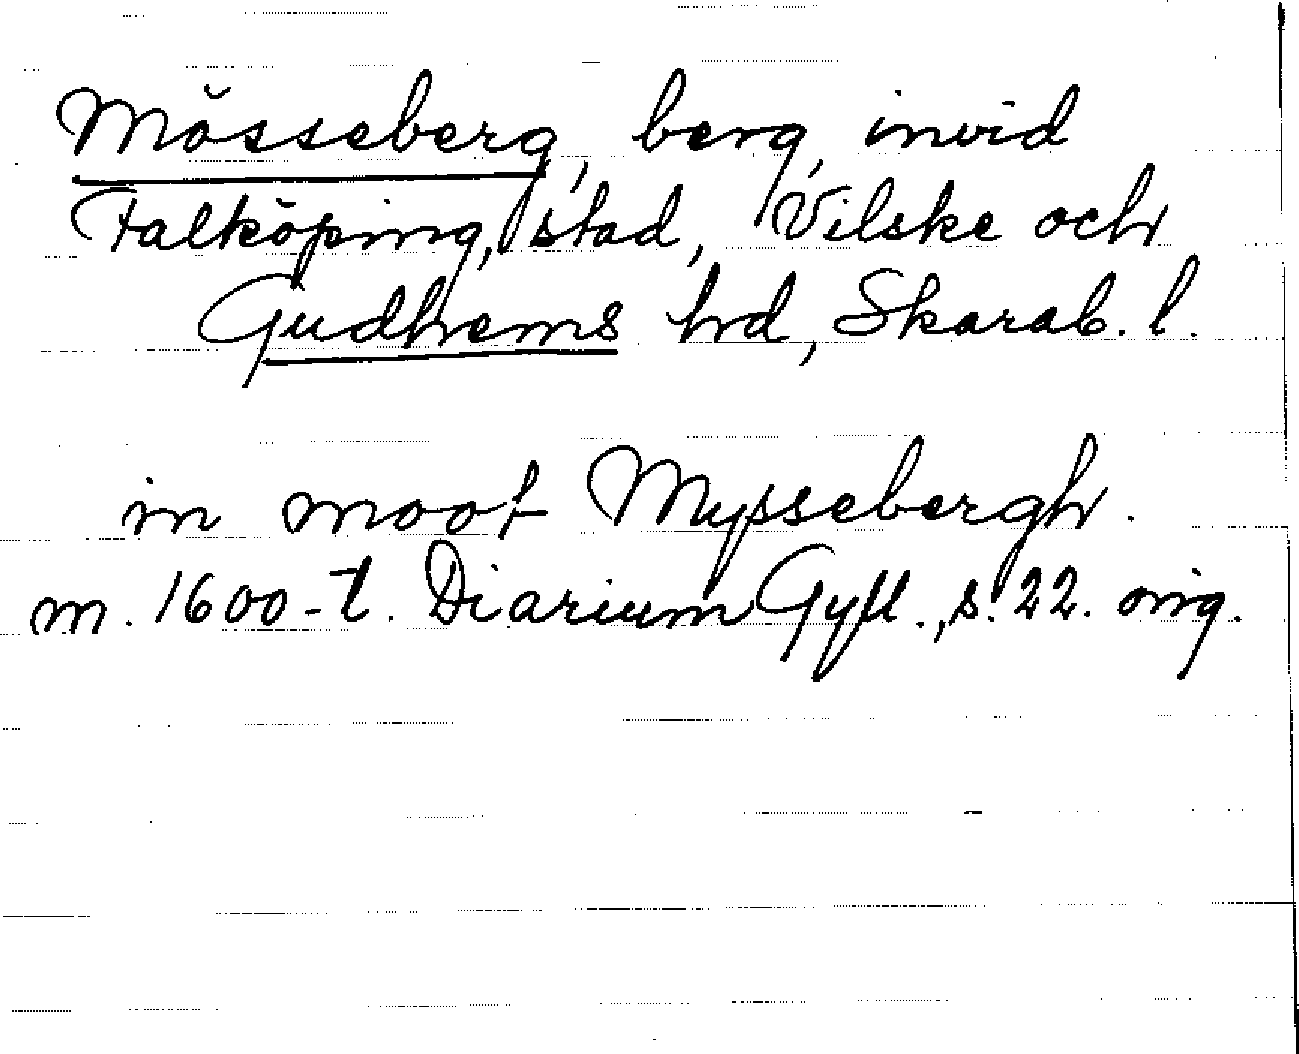 Mösseberg, berg, invid
Falköping, stad, Vilske och
Gudhems hd, Skarab. l.
in moot Myssebergh.
m. 1600-t. Diarium Gyll., s. 22. orig.